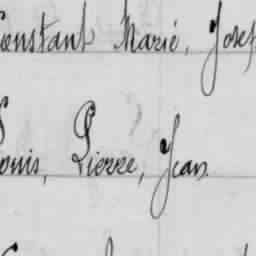 Constant Marie, Josep
Louis, Pierre, Jean